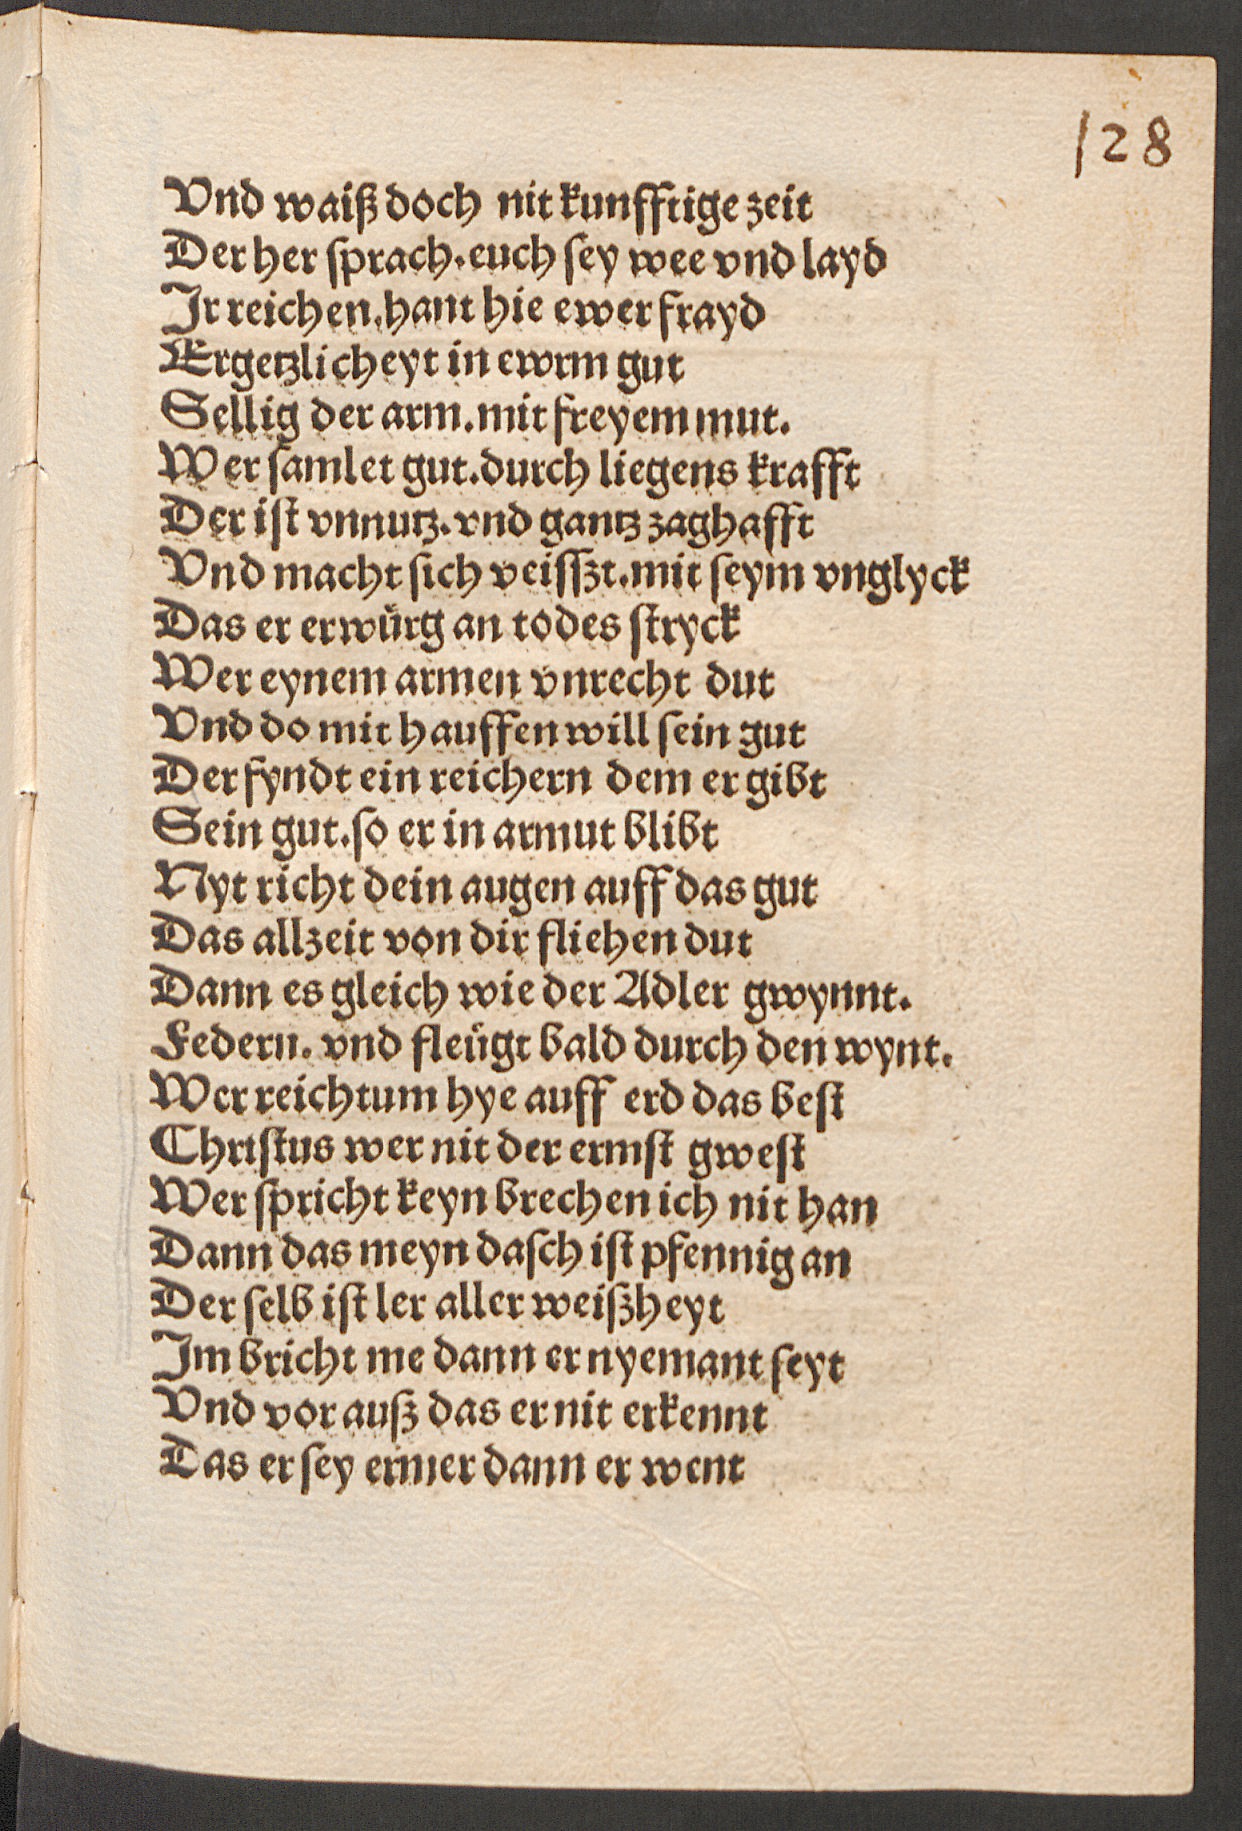 128
Vnd waiß doch nit kunfftige zeit
Der her sprach. euch sey wee vnd layd
Ir reichen. hant hie ewer frayd
Ergetzlicheyt in ewrm gut
Sellig der arm. mit freyem mut.
Wer samlet gut. durch liegens krafft
Der ist vnnutz. vnd gantz zaghafft
Vnd macht sich veisszt. mit seym vnglyck
Das er erwuͤrg an todes stryck
Wer eynem armen vnrecht dut
Vnd do mit hauffen will sein gut
Der fyndt ein reichern dem er gibt
Sein gut. so er in armut blibt
Nyt richt dein augen auff das gut
Das allzeit von dir fliehen dut
Dann es gleich wie der Adler gwynnt.
Federn. vnd fleuͤgt bald durch den wynt.
Wer reichtum hye auff erd das best
Christus wer nit der ermst gwest
Wer spricht keyn brechen ich nit han
Dann das meyn dasch ist pfennig an
Der selb ist ler aller weißheyt
Im bricht me dann er nyemant seyt
Vnd vor auß das er nit erkennt
Das er sey ermer dann er went